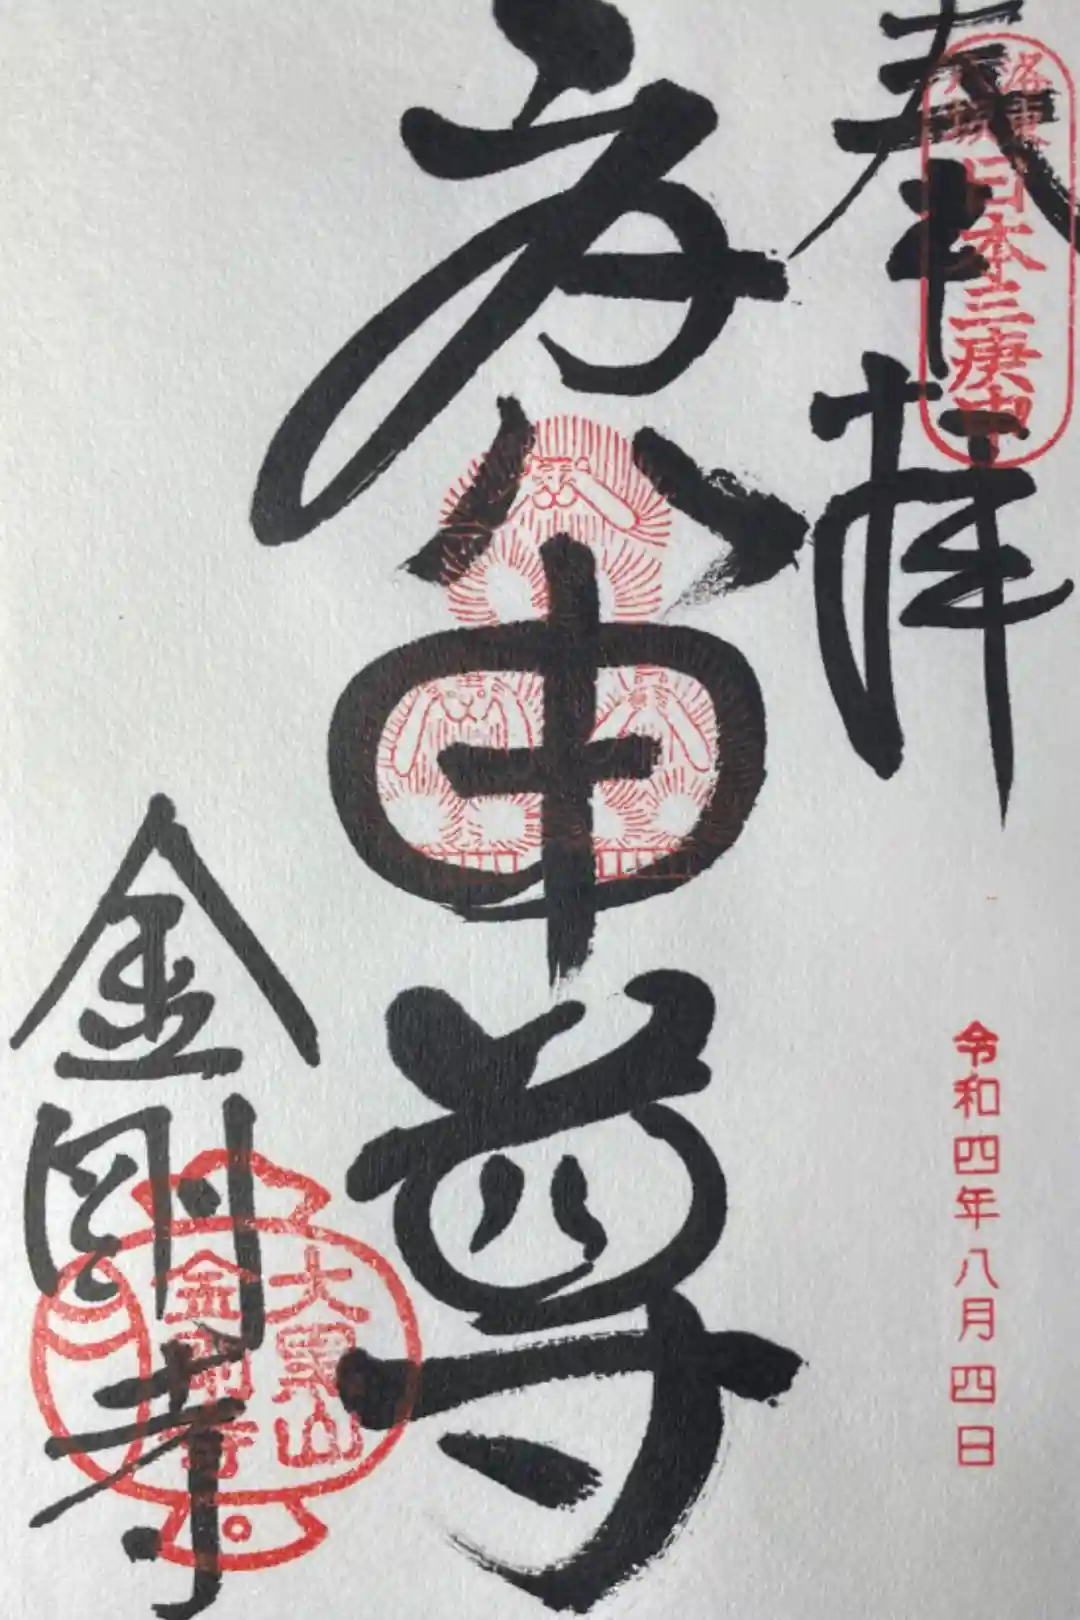 奉拝
洛東
八坂
日本三庚申
庚申尊
令和四年八月四日
金剛寺
大黒山
金剛寺